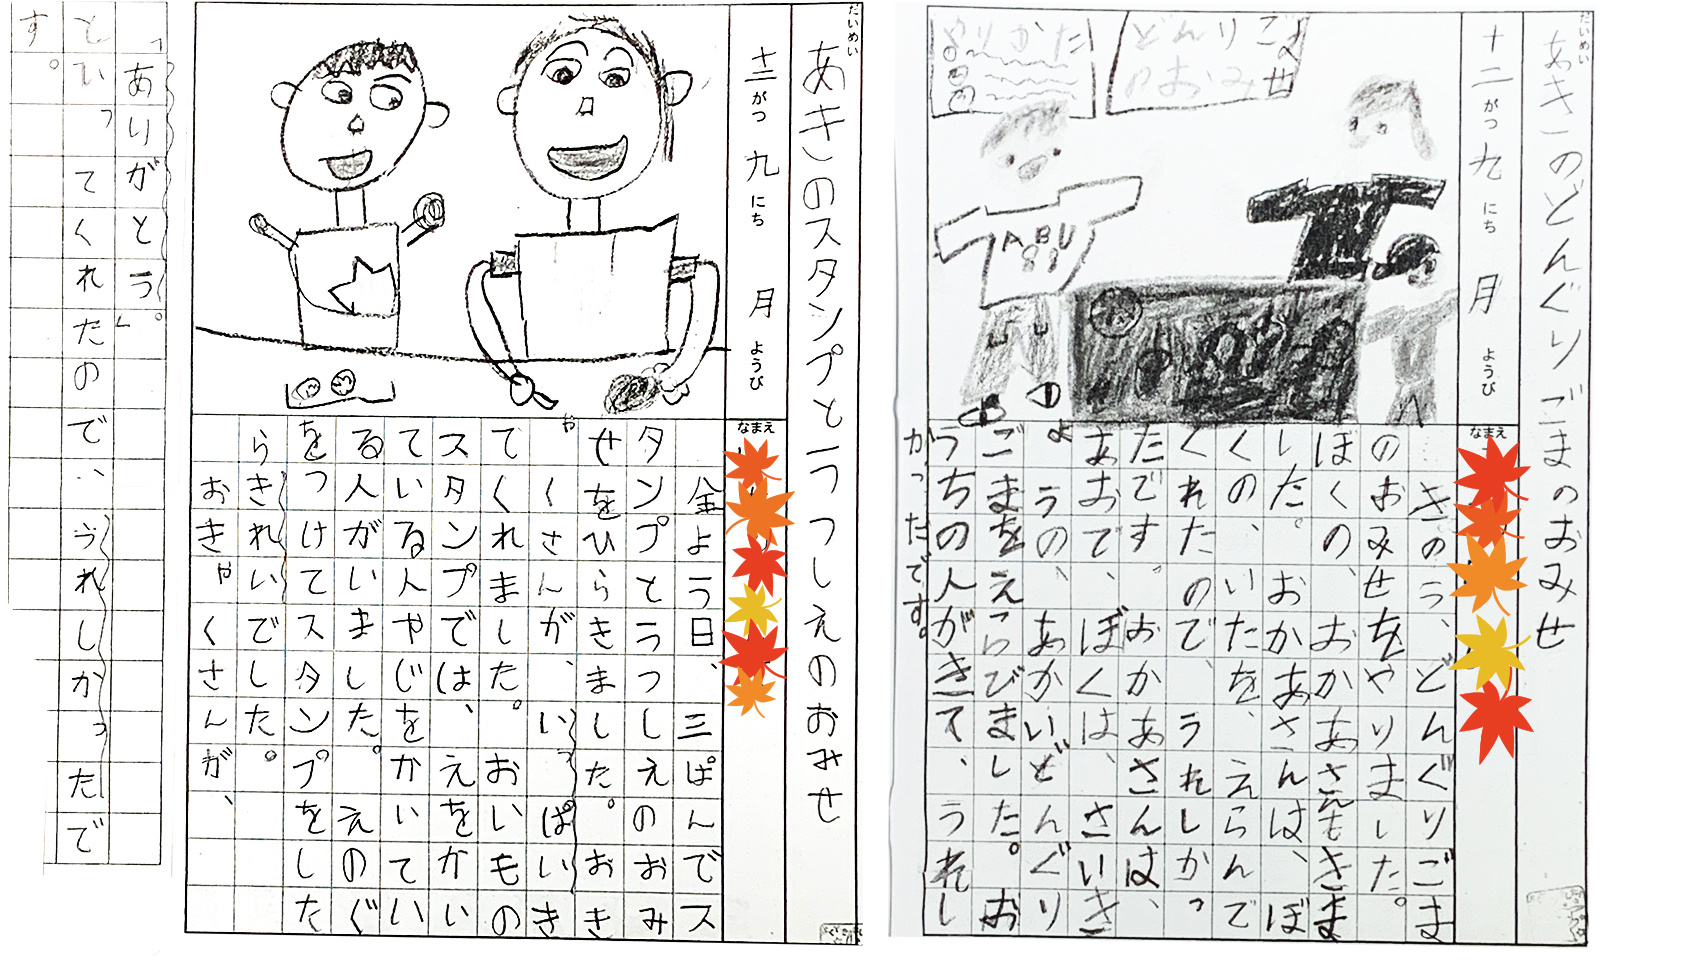 だいめい
あきのどんぐりごまのおみせ
十二がつ九にち月ようび
なまえ
のおみせ
やりかた
ABU
88
きのう、どんぐりごま
のおみせをやりました。
ぼくの、おかあさんもきま
した。おかあさんは、ぼ
くの、いたを、えらんで
くれたので、うれしかっ
たです。おかあさんは、
あおで、ぼくは、さいき
ょうの、あかいどんぐり
ごまをえらびました。お
うちの人がきて、うれし
かったです。
だいめい
あきのスタンプとうつしえのおみせ
十二がつ九にち月ようび
なまえ
金よう日、三ぱんでス
タンプとうつしえのおみ
せをひらきました。おき
ゃくさんが、いっぱいき
てくれました。おいもの
スタンプでは、えをかい
ている人やじをかいてい
る人がいました。えのぐ
をつけてスタンプをした
らきれいでした。
おきゃくさんが、
「ありがとう。」
といってくれたので、うれしかったで
す。